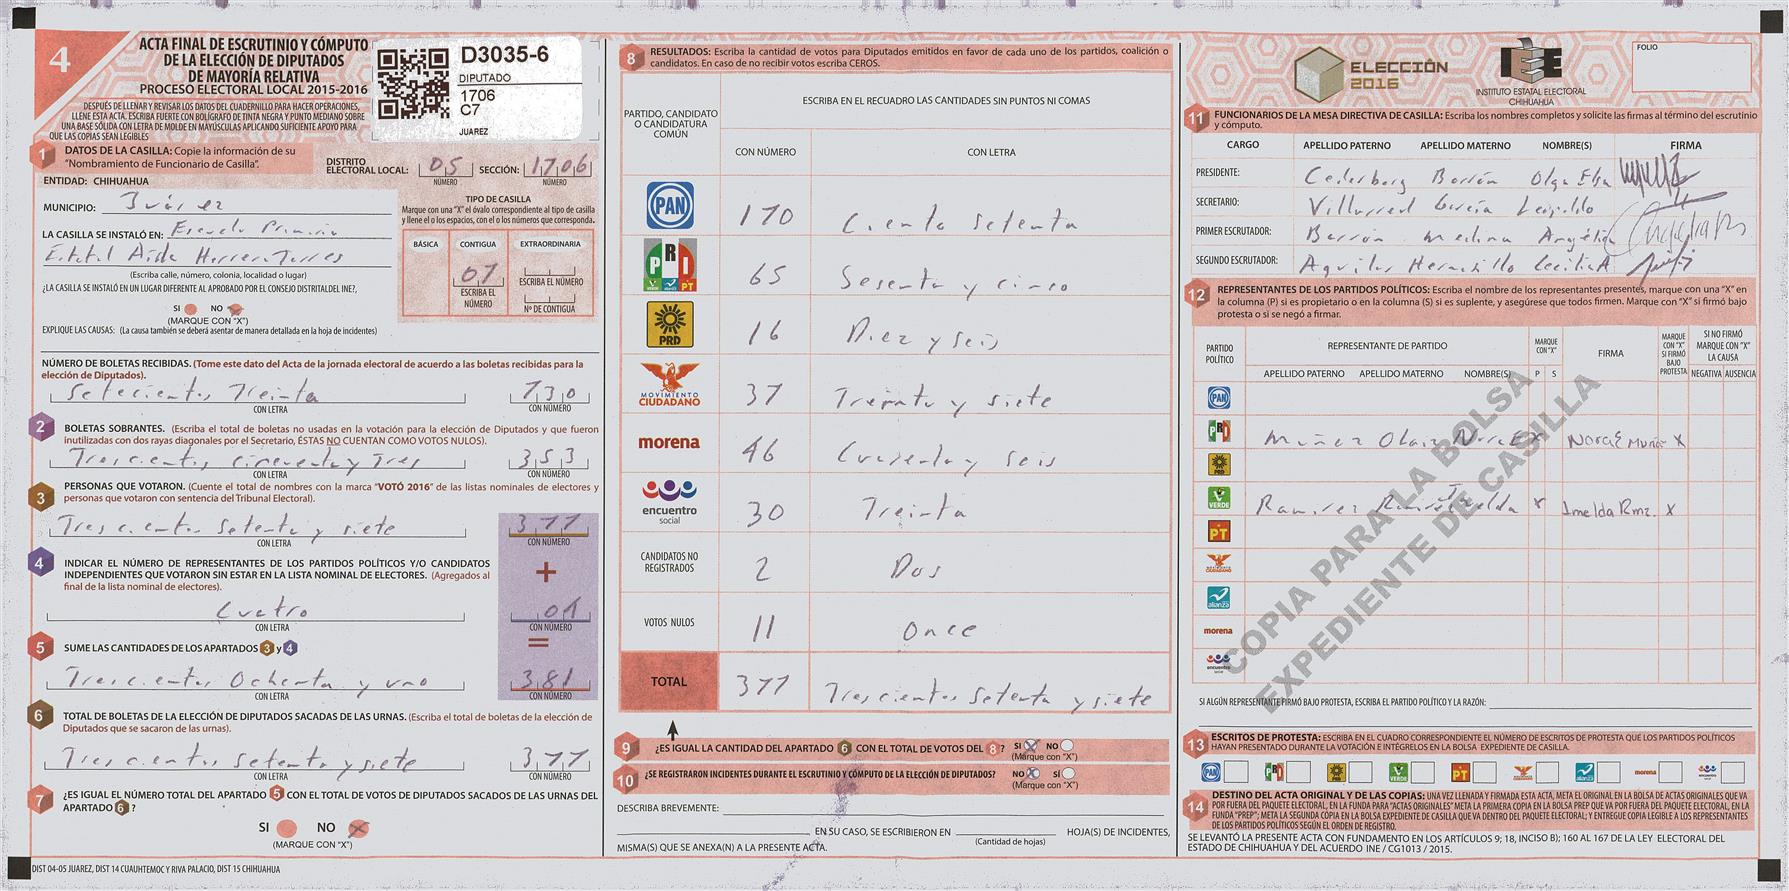 4
ACTA FINAL DE ESCRUTINIO Y CÓMPUTO
DE LA ELECCIÓN DE DIPUTADOS
DE MAYORÍA RELATIVA
PROCESO ELECTORAL LOCAL 2015-2016
DESPUÉS DE LLENAR Y REVISAR LOS DATOS DEL CUADERNILLO PARA HACER OPERACIONES,
LLENE ESTA ACTA. ESCRIBA FUERTE CON BOLÍGRAFO DE TINTA NEGRA Y PUNTO MEDIANO SOBRE
UNA BASE SÓLIDA CON LETRA DE MOLDE EN MAYÚSCULAS APLICANDO SUFICIENTE APOYO PARA
QUE LAS COPIAS SEAN LEGIBLES
D3035-6
DIPUTADO
1706
C7
JUAREZ
1 DATOS DE LA CASILLA: Copie la información de su
"Nombramiento de Funcionario de Casilla".
DISTRITO ELECTORAL LOCAL: 05 NÚMERO SECCIÓN: 1706 NÚMERO
ENTIDAD: CHIHUAHUA
MUNICIPIO: Juárez
LA CASILLA SE INSTALÓ EN: Escuela Primaria
Estatal Aida Herrera Torres
(Escriba calle, número, colonia, localidad o lugar)
¿LA CASILLA SE INSTALÓ EN UN LUGAR DIFERENTE AL APROBADO POR EL CONSEJO DISTRITALDEL INE?,
SI NO
(MARQUE CON "X")
EXPLIQUE LAS CAUSAS: (La causa también se deberá asentar de manera detallada en la hoja de incidentes)
TIPO DE CASILLA
Marque con una "X" el óvalo correspondiente al tipo de casilla
y llene el o los espacios, con el o los números que corresponda.
BÁSICA CONTIGUA EXTRAORDINARIA
07
ESCRIBA EL NÚMERO ESCRIBA EL NÚMERO
Nº DE CONTIGUA
NÚMERO DE BOLETAS RECIBIDAS. (Tome este dato del Acta de la jornada electoral de acuerdo a las boletas recibidas para la
elección de Diputados).
Setecientos Treinta 730
CON LETRA CON NÚMERO
2 BOLETAS SOBRANTES. (Escriba el total de boletas no usadas en la votación para la elección de Diputados y que fueron
inutilizadas con dos rayas diagonales por el Secretario, ÉSTAS NO CUENTAN COMO VOTOS NULOS).
Trescientos cincuenta y Tres 353
CON LETRA CON NÚMERO
3 PERSONAS QUE VOTARON. (Cuente el total de nombres con la marca "VOTÓ 2016" de las listas nominales de electores y
personas que votaron con sentencia del Tribunal Electoral).
Trescientos setenta y siete 377
CON LETRA CON NÚMERO
4 INDICAR EL NÚMERO DE REPRESENTANTES DE LOS PARTIDOS POLÍTICOS Y/O CANDIDATOS
INDEPENDIENTES QUE VOTARON SIN ESTAR EN LA LISTA NOMINAL DE ELECTORES. (Agregados al
final de la lista nominal de electores).
+
Cuatro 04
CON LETRA CON NÚMERO
=
5 SUME LAS CANTIDADES DE LOS APARTADOS 3 y 4
Trescientos Ochenta y uno 381
CON LETRA CON NÚMERO
6 TOTAL DE BOLETAS DE LA ELECCIÓN DE DIPUTADOS SACADAS DE LAS URNAS. (Escriba el total de boletas de la elección de
Diputados que se sacaron de las urnas).
Trescientos setenta y siete 377
CON LETRA CON NÚMERO
7 ¿ES IGUAL EL NÚMERO TOTAL DEL APARTADO 5 CON EL TOTAL DE VOTOS DE DIPUTADOS SACADOS DE LAS URNAS DEL
APARTADO 6?
SI NO X
(MARQUE CON "X")
DIST 04-05 JUAREZ, DIST 14 CUAUHTEMOC Y RIVA PALACIO, DIST 15 CHIHUAHUA
8 RESULTADOS: Escriba la cantidad de votos para Diputados emitidos en favor de cada uno de los partidos, coalición o
candidatos. En caso de no recibir votos escriba CEROS.
PARTIDO, CANDIDATO
O CANDIDATURA
COMÚN
ESCRIBA EN EL RECUADRO LAS CANTIDADES SIN PUNTOS NI COMAS
CON NÚMERO CON LETRA
PAN 170 Ciento setenta
PRI VERDE PT 65 Sesenta y cinco
PRD 16 Diez y seis
MOVIMIENTO CIUDADANO 37 Treinta y siete
morena 46 Cuarenta y seis
encuentro social 30 Treinta
CANDIDATOS NO REGISTRADOS 2 Dos
VOTOS NULOS 11 Once
TOTAL 377 Trescientos setenta y siete
9 ¿ES IGUAL LA CANTIDAD DEL APARTADO 6 CON EL TOTAL DE VOTOS DEL 8? SI X NO
(Marque con "X")
10 ¿SE REGISTRARON INCIDENTES DURANTE EL ESCRUTINIO Y CÓMPUTO DE LA ELECCIÓN DE DIPUTADOS? NO X SÍ
(Marque con "X")
DESCRIBA BREVEMENTE:
EN SU CASO, SE ESCRIBIERON EN HOJA(S) DE INCIDENTES,
(Cantidad de hojas)
MISMA(S) QUE SE ANEXA(N) A LA PRESENTE ACTA.
ELECCIÓN 2016
IEE
INSTITUTO ESTATAL ELECTORAL
CHIHUAHUA
FOLIO
11 FUNCIONARIOS DE LA MESA DIRECTIVA DE CASILLA: Escriba los nombres completos y solicite las firmas al término del escrutinio
y cómputo.
CARGO APELLIDO PATERNO APELLIDO MATERNO NOMBRE(S) FIRMA
PRESIDENTE: Cederberg Barrón Olga Elsa
SECRETARIO: Villarreal García Leopoldo
PRIMER ESCRUTADOR: Barrón Medina Angélica
SEGUNDO ESCRUTADOR: Aguilar Hermosillo Cecilia
12 REPRESENTANTES DE LOS PARTIDOS POLÍTICOS: Escriba el nombre de los representantes presentes, marque con una "X" en
la columna (P) si es propietario o en la columna (S) si es suplente, y asegúrese que todos firmen. Marque con "X" si firmó bajo
protesta o si se negó a firmar.
PARTIDO POLÍTICO
REPRESENTANTE DE PARTIDO
APELLIDO PATERNO APELLIDO MATERNO NOMBRE(S)
MARQUE CON "X"
P S
FIRMA
MARQUE CON "X" SI FIRMÓ BAJO PROTESTA
SI NO FIRMÓ MARQUE CON "X" LA CAUSA
NEGATIVA AUSENCIA
PAN
PRI Muñoz Nora E X Nora E Muñoz X
PRD
VERDE Ramirez Imelda X Imelda Rmz. X
PT
alianza
morena
encuentro
COPIA PARA LA BOLSA
EXPEDIENTE DE CASILLA
SI ALGÚN REPRESENTANTE FIRMÓ BAJO PROTESTA, ESCRIBA EL PARTIDO POLÍTICO Y LA RAZÓN:
13 ESCRITOS DE PROTESTA: ESCRIBA EN EL CUADRO CORRESPONDIENTE EL NÚMERO DE ESCRITOS DE PROTESTA QUE LOS PARTIDOS POLÍTICOS
HAYAN PRESENTADO DURANTE LA VOTACIÓN E INTÉGRELOS EN LA BOLSA EXPEDIENTE DE CASILLA.
PAN PRI PRD VERDE PT alianza morena
14 DESTINO DEL ACTA ORIGINAL Y DE LAS COPIAS: UNA VEZ LLENADA Y FIRMADA ESTA ACTA, META EL ORIGINAL EN LA BOLSA DE ACTAS ORIGINALES QUE VA
POR FUERA DEL PAQUETE ELECTORAL, EN LA FUNDA PARA "ACTAS ORIGINALES" META LA PRIMERA COPIA EN LA BOLSA PREP QUE VA POR FUERA DEL PAQUETE ELECTORAL, EN LA
FUNDA "PREP"; META LA SEGUNDA COPIA EN LA BOLSA EXPEDIENTE DE CASILLA QUE VA DENTRO DEL PAQUETE ELECTORAL; Y ENTREGUE COPIA LEGIBLE A LOS REPRESENTANTES
DE LOS PARTIDOS POLÍTICOS SEGÚN EL ORDEN DE REGISTRO.
SE LEVANTÓ LA PRESENTE ACTA CON FUNDAMENTO EN LOS ARTÍCULOS 9; 18, INCISO B); 160 AL 167 DE LA LEY ELECTORAL DEL
ESTADO DE CHIHUAHUA Y DEL ACUERDO INE / CG1013 / 2015.